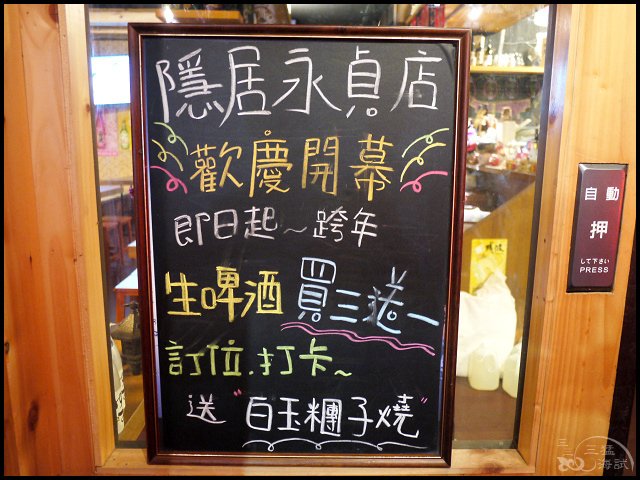 隱居永貞店
歡慶開幕
即日起~跨年
生啤酒 買三送一
訂位.打卡~
送 "白玉糰子燒"
自動
押
して下さい
PRESS
三猛
海試